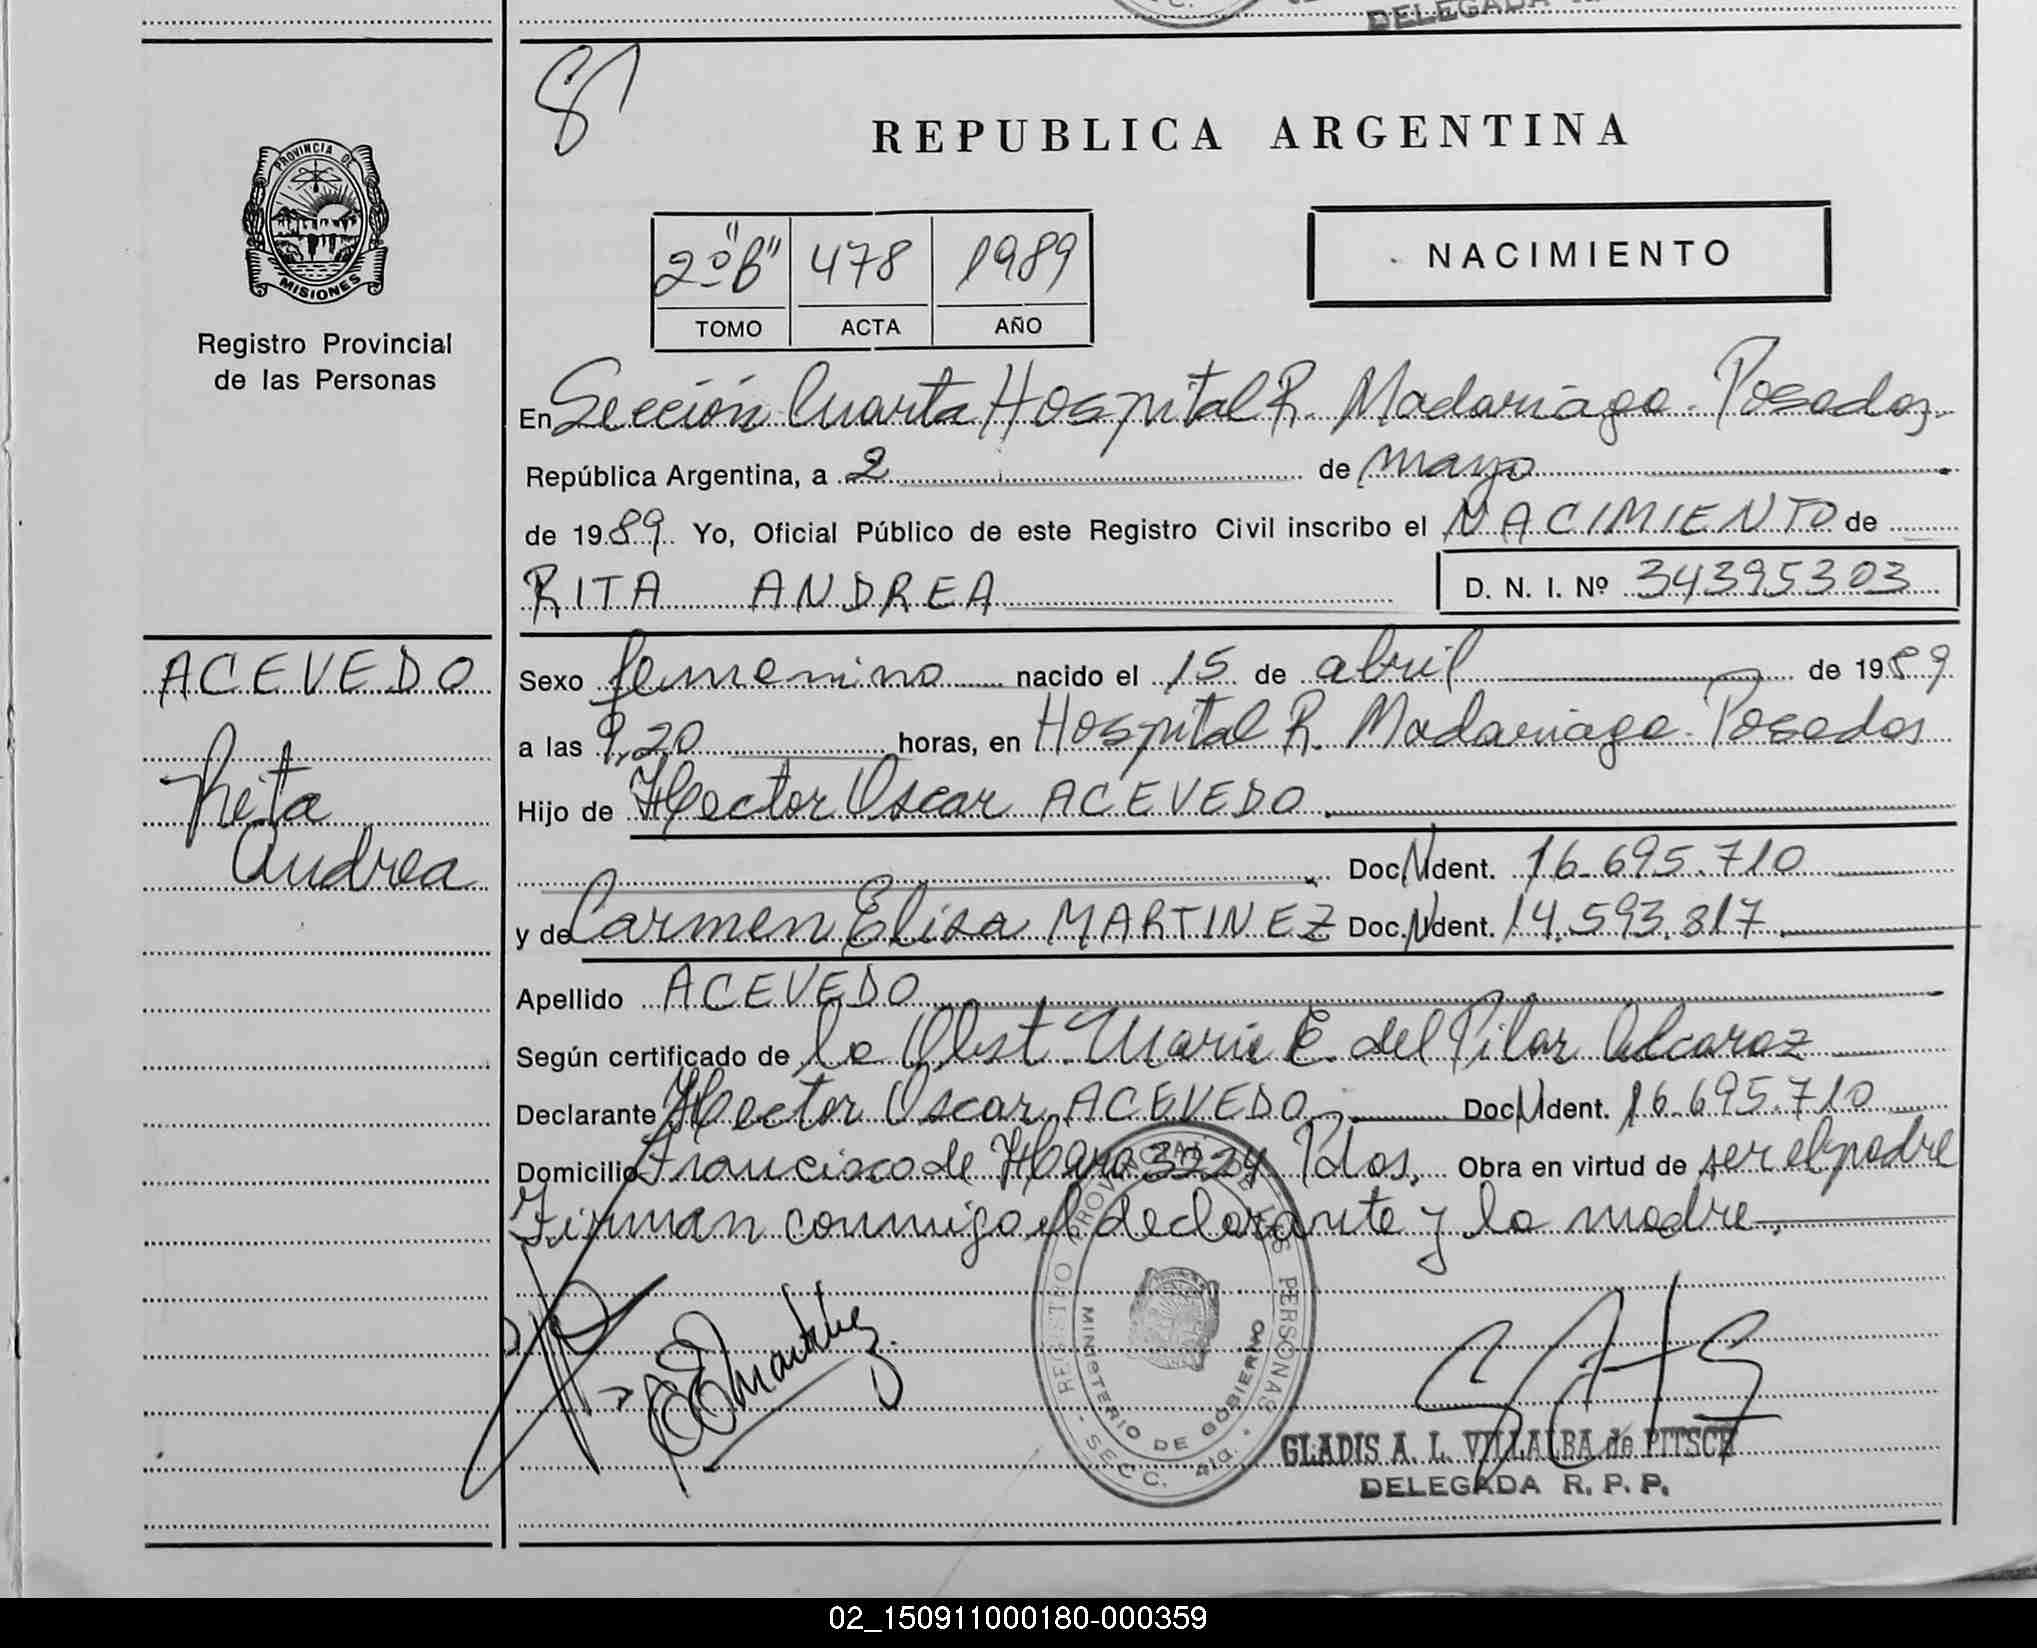 DELEGADA
81
PROVINCIA DE
MISIONES
Registro Provincial
de las Personas
REPUBLICA ARGENTINA
2º "B" 478 1989
TOMO ACTA AÑO
NACIMIENTO
En Sección Cuarta Hospital R. Madariaga - Posadas
República Argentina, a 2 de mayo
de 1989 Yo, Oficial Público de este Registro Civil inscribo el NACIMIENTO de
RITA ANDREA D. N. I. Nº 34395303
ACEVEDO
Rita
Andrea
Sexo femenino nacido el 15 de abril de 1989
a las 9,20 horas, en Hospital R. Madariaga - Posadas
Hijo de Hector Oscar ACEVEDO
Doc. N Ident. 16.695.710
y de Carmen Elisa MARTINEZ Doc. N Ident. 14.593.817
Apellido ACEVEDO
Según certificado de la Obst. Maria E. del Pilar Alcaraz
Declarante Hector Oscar ACEVEDO Doc. N Ident. 16.695.710
Domicilio Francisco de Haro 3224 Pdas. Obra en virtud de ser el padre
Firman conmigo el declarante y la madre.
CEMartinez
REGISTRO PROVINCIAL DE LAS PERSONAS
MINISTERIO DE GOBIERNO
- SECC. 4ta. -
GLADIS A. L. VILLALBA de PITSCH
DELEGADA R. P. P.
02_150911000180-000359